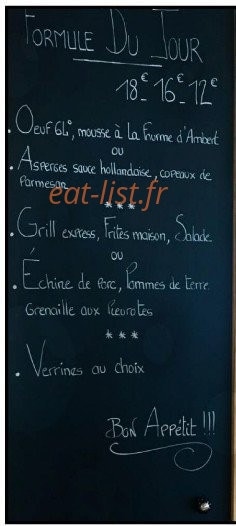 Formule Du Jour
18€ 16€ 12€
. Oeuf 64°, mousse à la Fourme d'Ambert
ou
. Asperges sauce hollandaise, copeaux de
Parmesan
eat-list.fr
***
. Grill express, Frites maison, Salade
ou
. Échine de Porc, Pommes de terre
Grenaille aux Pleurotes
***
. Verrines au choix
Bon Appétit !!!